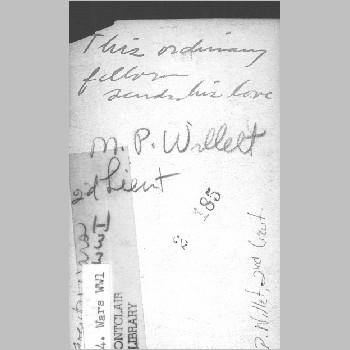 This ordinary
fellow
sends his love
M. P. Willett
2d Lieut
185
2
WWI
4. Wars WW1
ONTCLAIR
LIBRARY
P. Willet, 2nd Lieut.